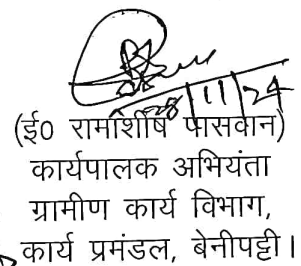 28/11/24
(ई० रामाशीष पासवान)
कार्यपालक अभियंता
ग्रामीण कार्य विभाग,
कार्य प्रमंडल, बेनीपट्टी।